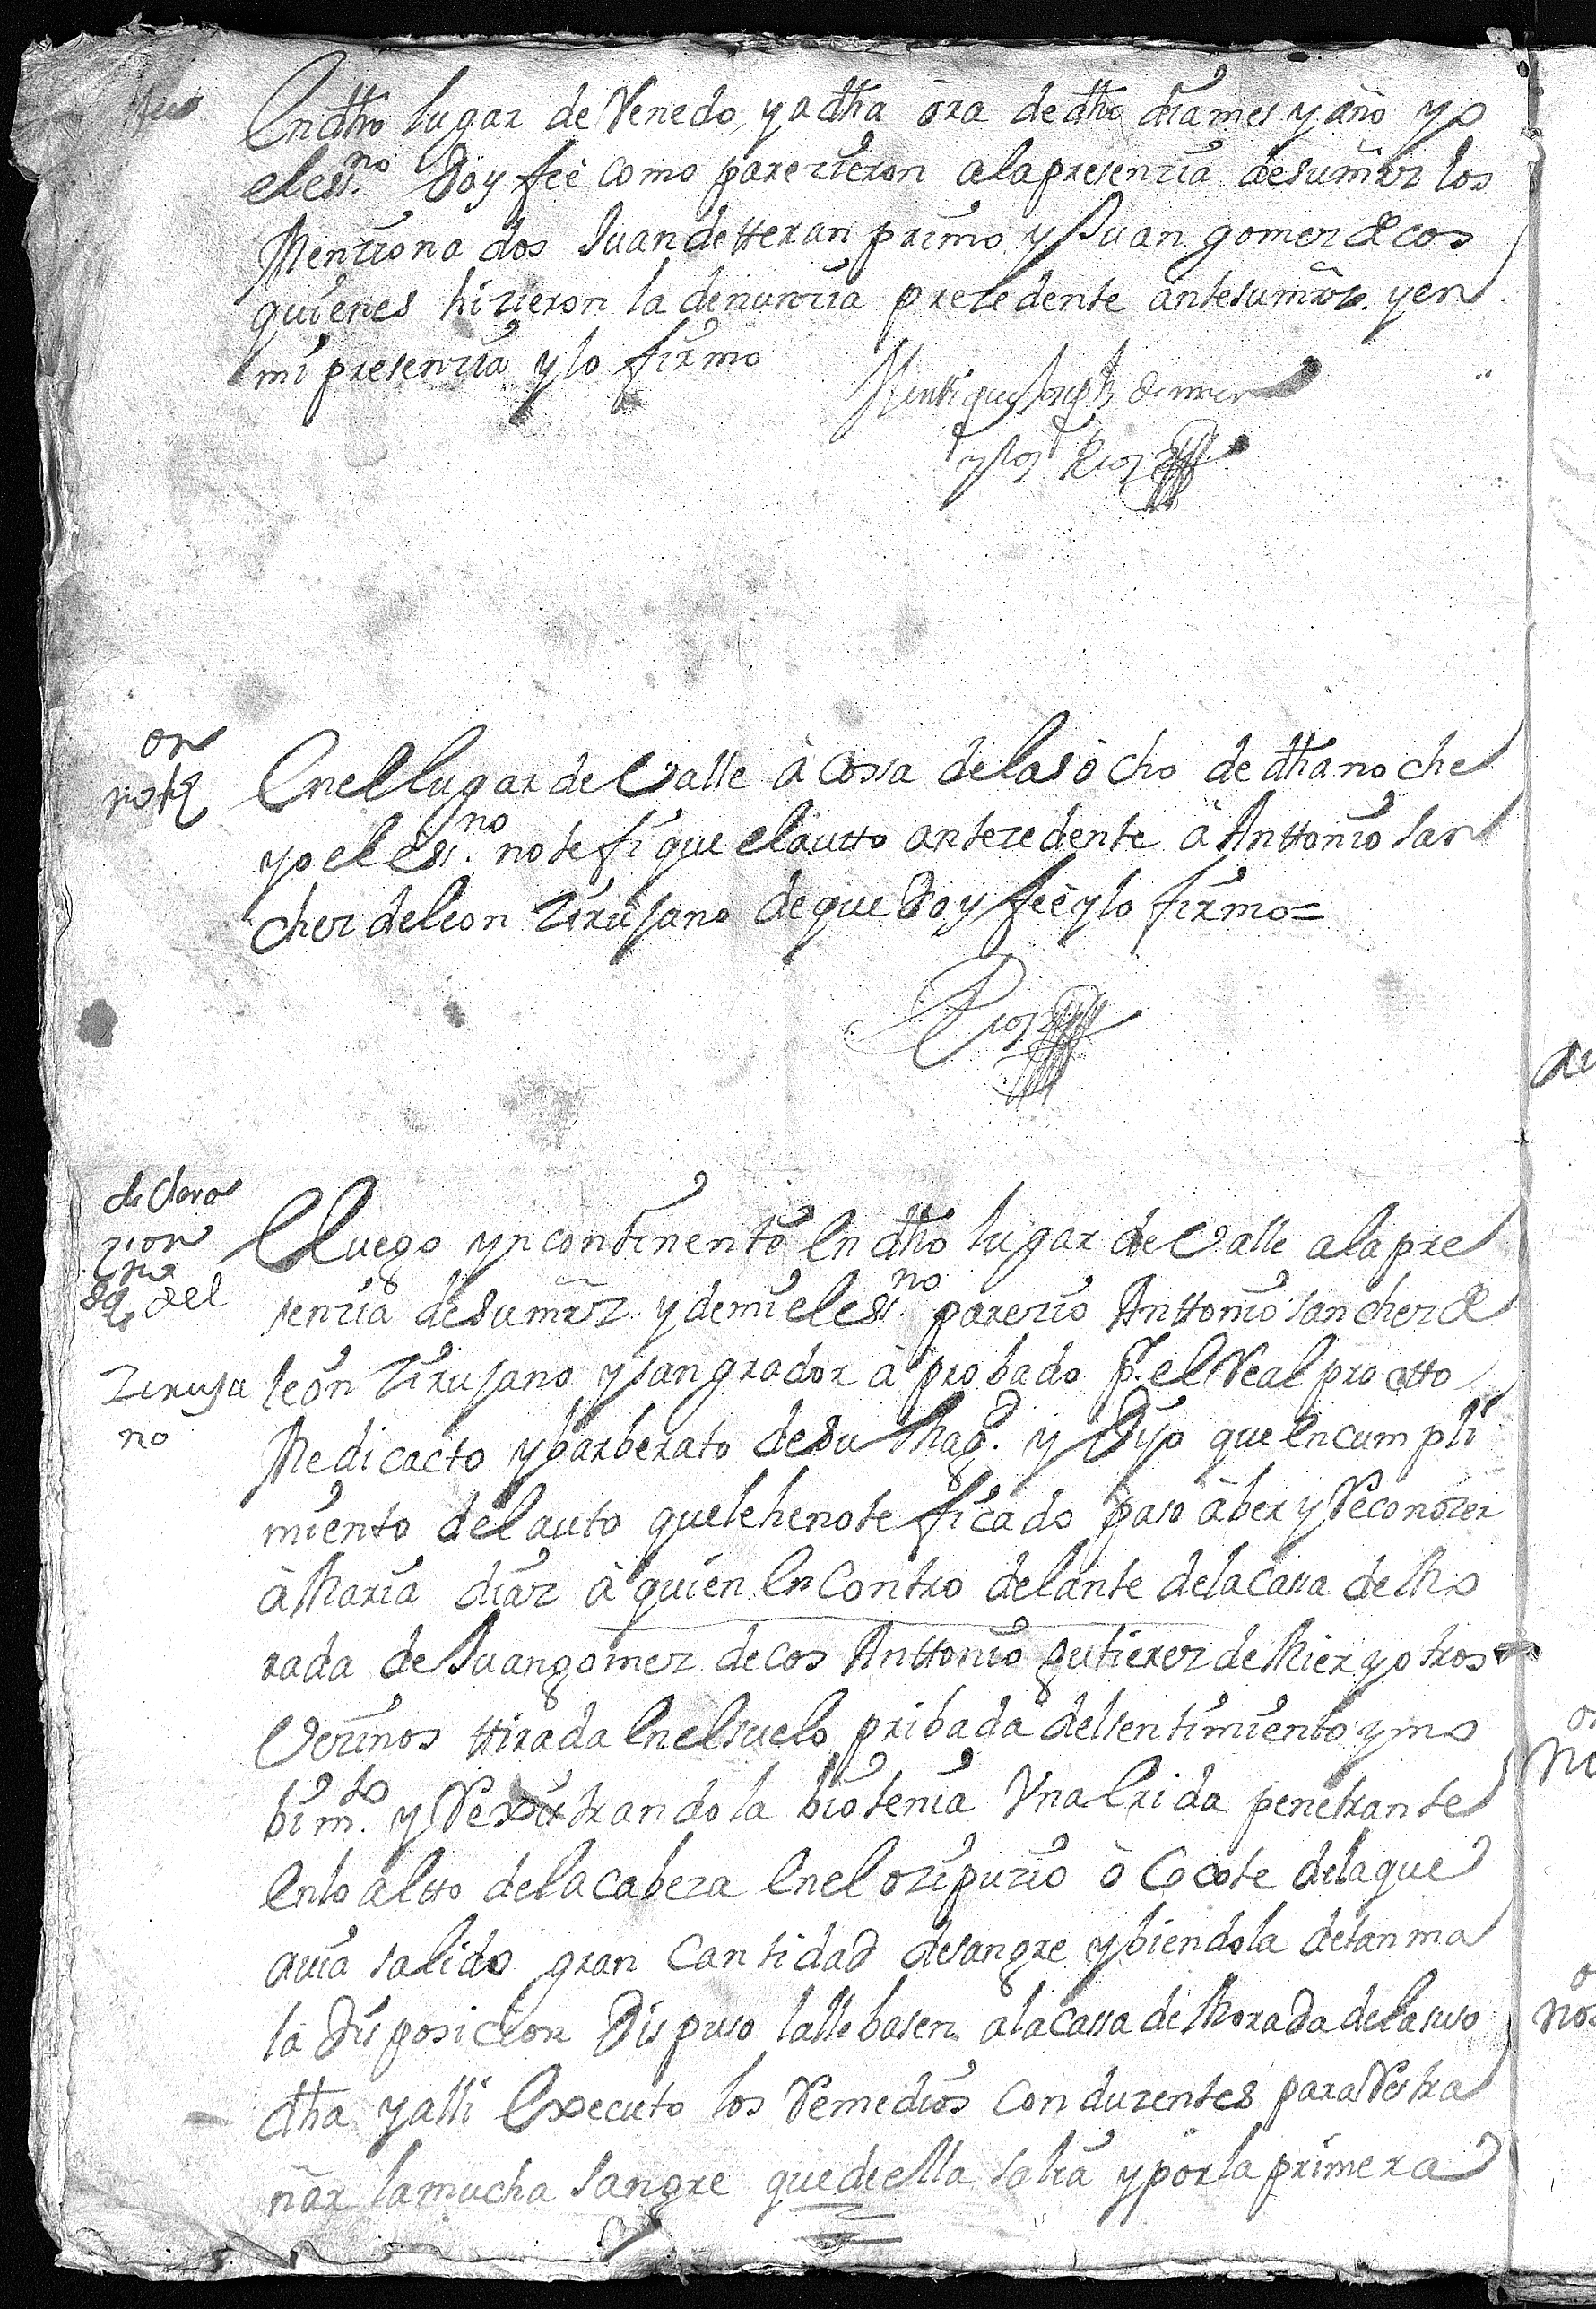 En dho lugar de Venedo, y a dha ora de dho dia mes y año yo
el essno. Doy feè como parezieron a la presenzia de su mrd los
Menziona dos Juan de tteran primo y Juan gomez de cos
quienes hizieron la denunzia prezedente ante su mrd. y en
mi presenzia y lo firmo
y los Rios
on
notf
En el lugar de Valle à cossa de las ócho de dha noche
yo el essno. notefique el áutto antezedente à Anttonio san
chez de leon zirujano de que Doy feè y lo firmo=
Rios
declara
zion
del
ziruja
no
E luego yncontinentô En dho lugar de Valle a la pre
senzia de su mrd y de mi el essno. parezio Anttonio sanchez de
león zirujano y sangrador à probado Pr. el Real protto
Medicacto y barberato de su Magd. y Dijo que En cumpli
miento del auto que le he noteficado paso à ber y Reconozer
à Maria diaz à quien En Contro delante de la cassa de Mo
rada de Juan gomez de cos Anttonio gutierrez de Mier y otros
Vezinos ttirada En el suelo pribada del sentimiento y mo
bimto. y Rexistrandola bio tenia Vna Erida penetrante
En lo altto de la cabeza En el ozipuzio ò Cocote de la que
auia salido gran Cantidad de sangre y biendola de tan ma
la Disposicion Dispuso la lle basen a la cassa de Morada de la suso
dha y alli Executo los Remedios conduzentes para Restra
ñar la mucha sangre que de ella salia y por la primera